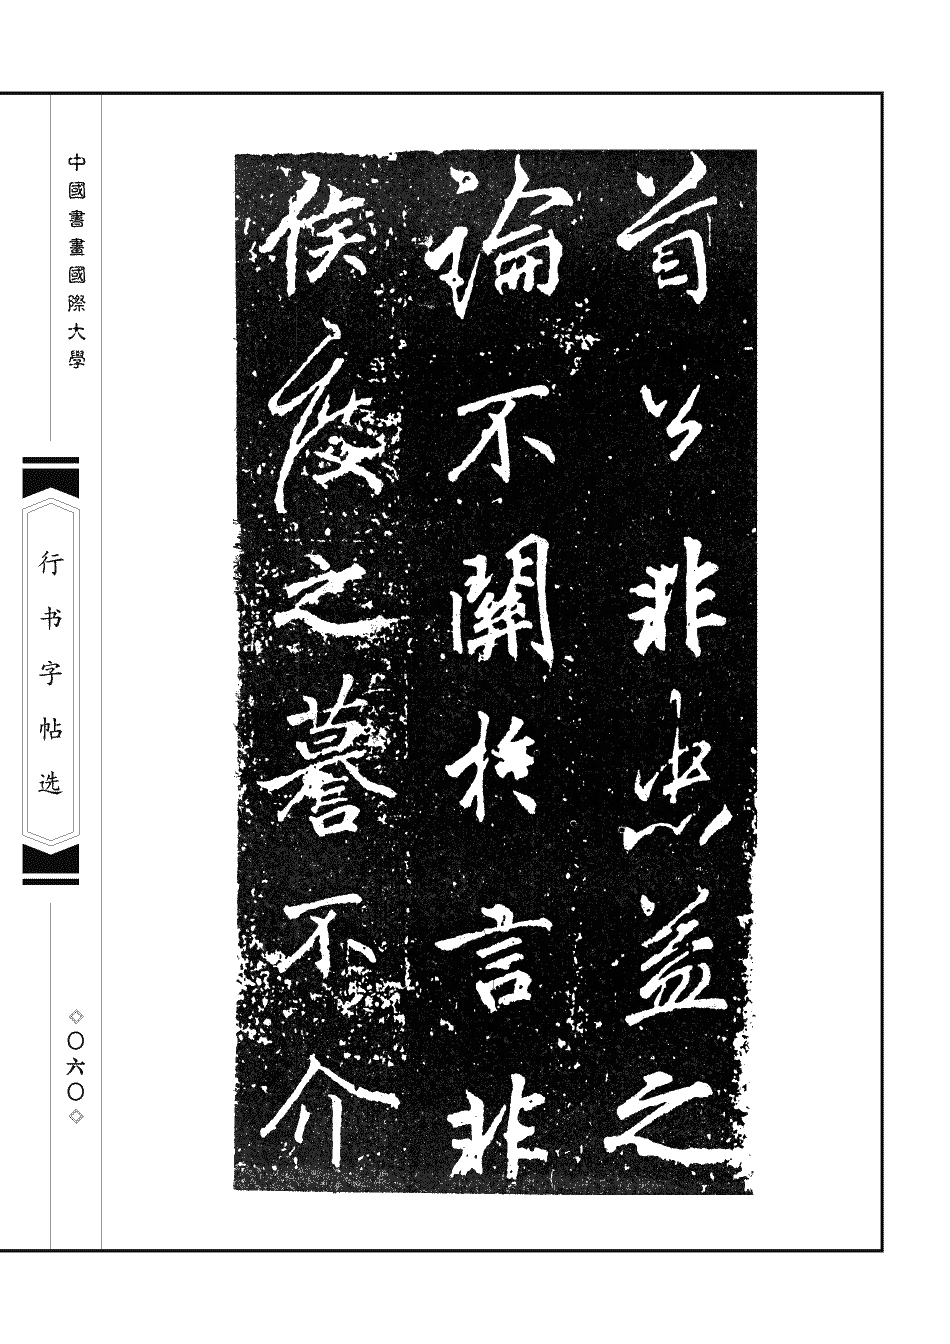 首公非忠益之
論不關扵言非
侯度之謩不介
中國書畫國際大學
行书字帖选
◇〇六〇◇